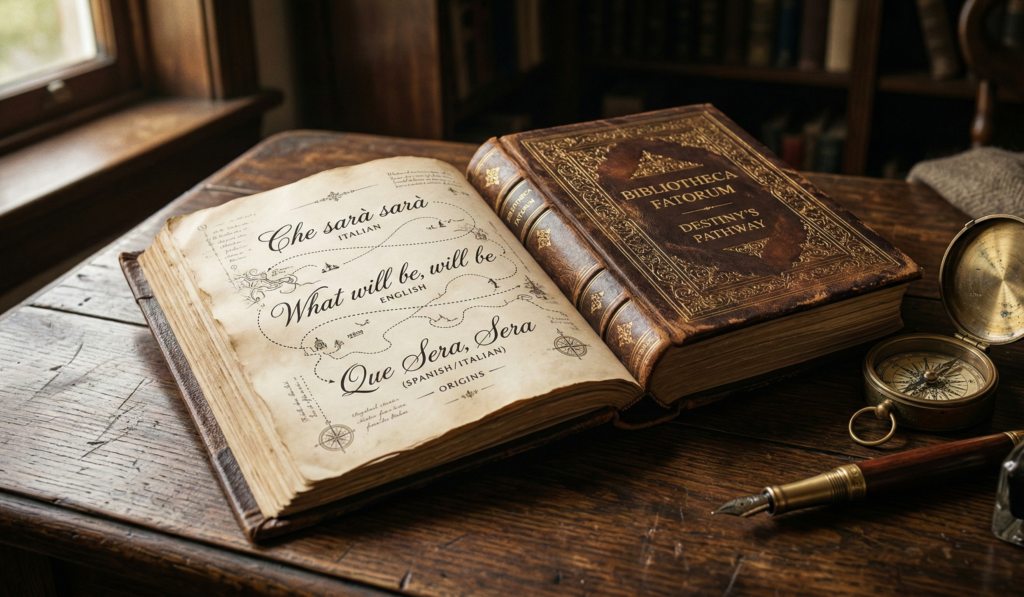 Che sarà sarà
ITALIAN
What will be, will be
ENGLISH
Que Sera, Sera
(SPANISH/ITALIAN)
ORIGINS
BIBLIOTHECA
FATORUM
DESTINY'S
PATHWAY
BIBLIOTHECA
FATORUM